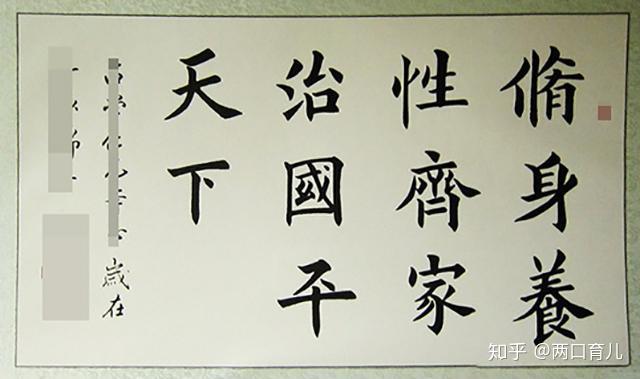 脩身養
性齊家
治國平
天下
歲在
知乎 @两口育儿